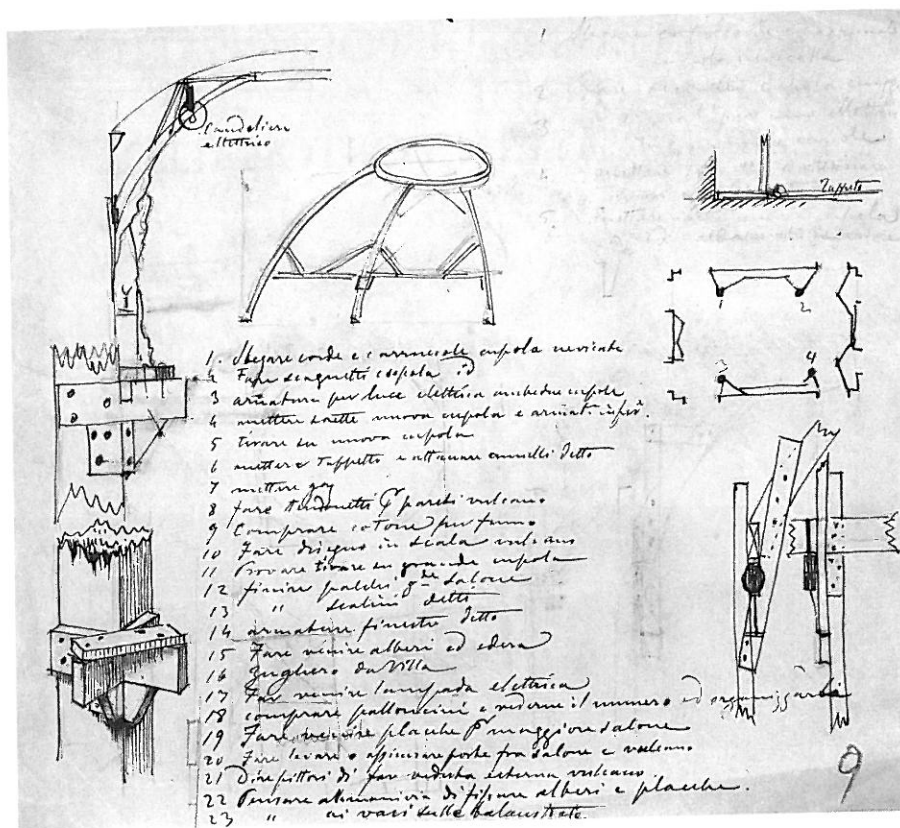 Candeliere
elettrico
Tappeto
1 2
3 4
1. Slegare corde e carrucole cupola nevicate
2 Fare cupola id
3 armatura per luce elettrica ambedue cupole
4 mettere saette nuova cupola e
5 tirare su nuova cupola
6 mettere Tappeto e attaccare anelli detto
7 mettere gaz
8 fare pareti vulcano
9 Comprare cotone per fumo
10 Fare disegno in scala vulcano
11 Provare tirare su grande cupola
12 finire palchi gde salone
13 " scalini detti
14 armature finestre detto
15 Fare venire alberi ed edera
16 da Villa
17 Far venire lampada elettrica
18 comprare palloncini e vederne il numero ed organizzarli
19 Fare venire placche pr maggiore salone
20 Fare levare o porte fra salone e vulcano
21 Dire pittori di far veduta esterna vulcano
22 Pensare alla maniera di fissare alberi e placche.
23 " ai vasi sulle balaustrate.
9